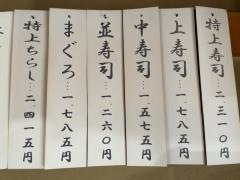 特上寿司…二、三一〇円
上寿司…一、七八五円
中寿司…一、五七五円
並寿司…一、二六〇円
まぐろ…一、七八五円
特上ちらし…二、四一五円